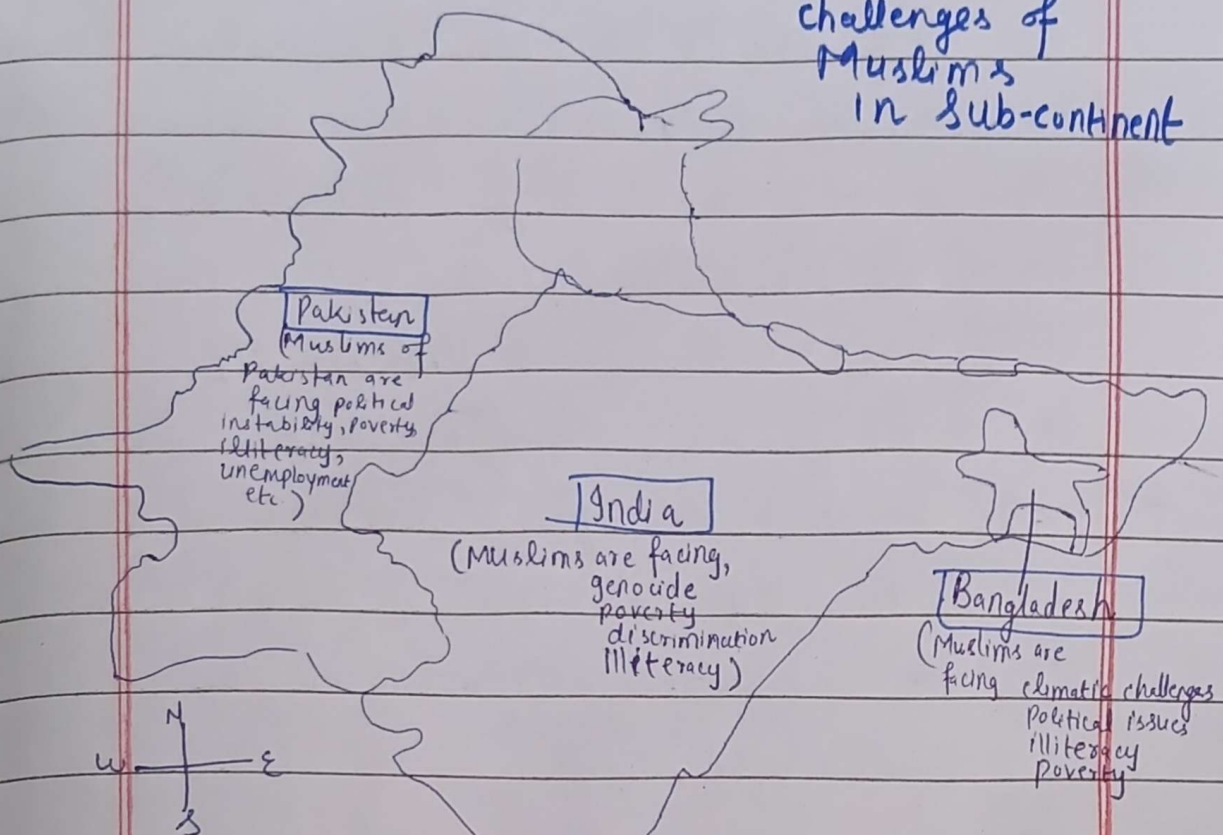 challenges of
Muslims
in sub-continent
Pakistan
(Muslims of
Pakistan are
facing political
instability, poverty
illiteracy,
unemployment
etc.)
India
(Muslims are facing,
genocide
poverty
discrimination
illiteracy)
Bangladesh
(Muslims are
facing climatic challenges
political issues
illiteracy
poverty
N
W E
S